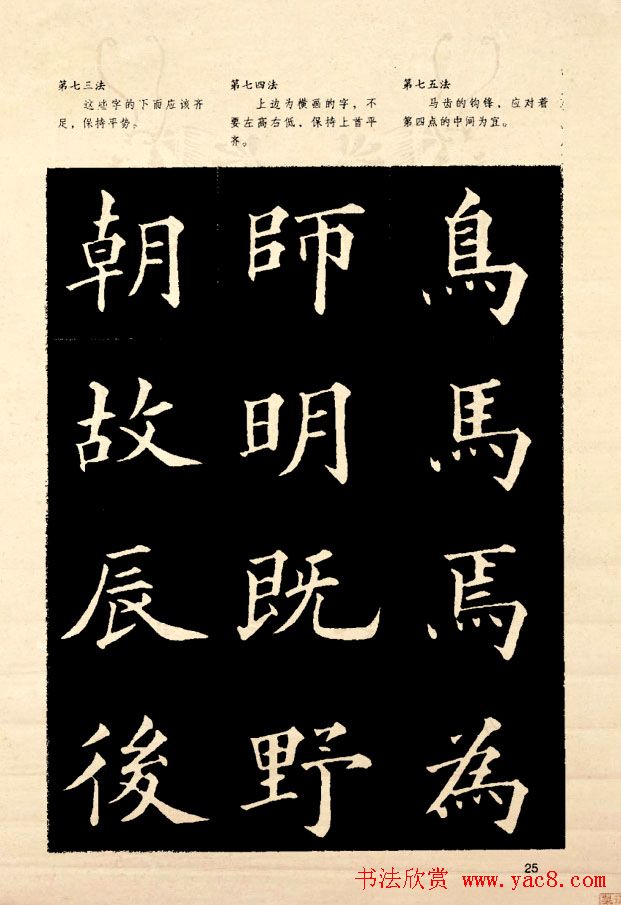 第七三法
这些字的下面应该齐
足，保持平势。
第七四法
上边为横画的字，不
要左高右低，保持上首平
齐。
第七五法
马齿的钩锋，应对着
第四点的中间为宜。
朝師鳥
故明馬
辰既焉
後野為
25
书法欣赏 www.yac8.com